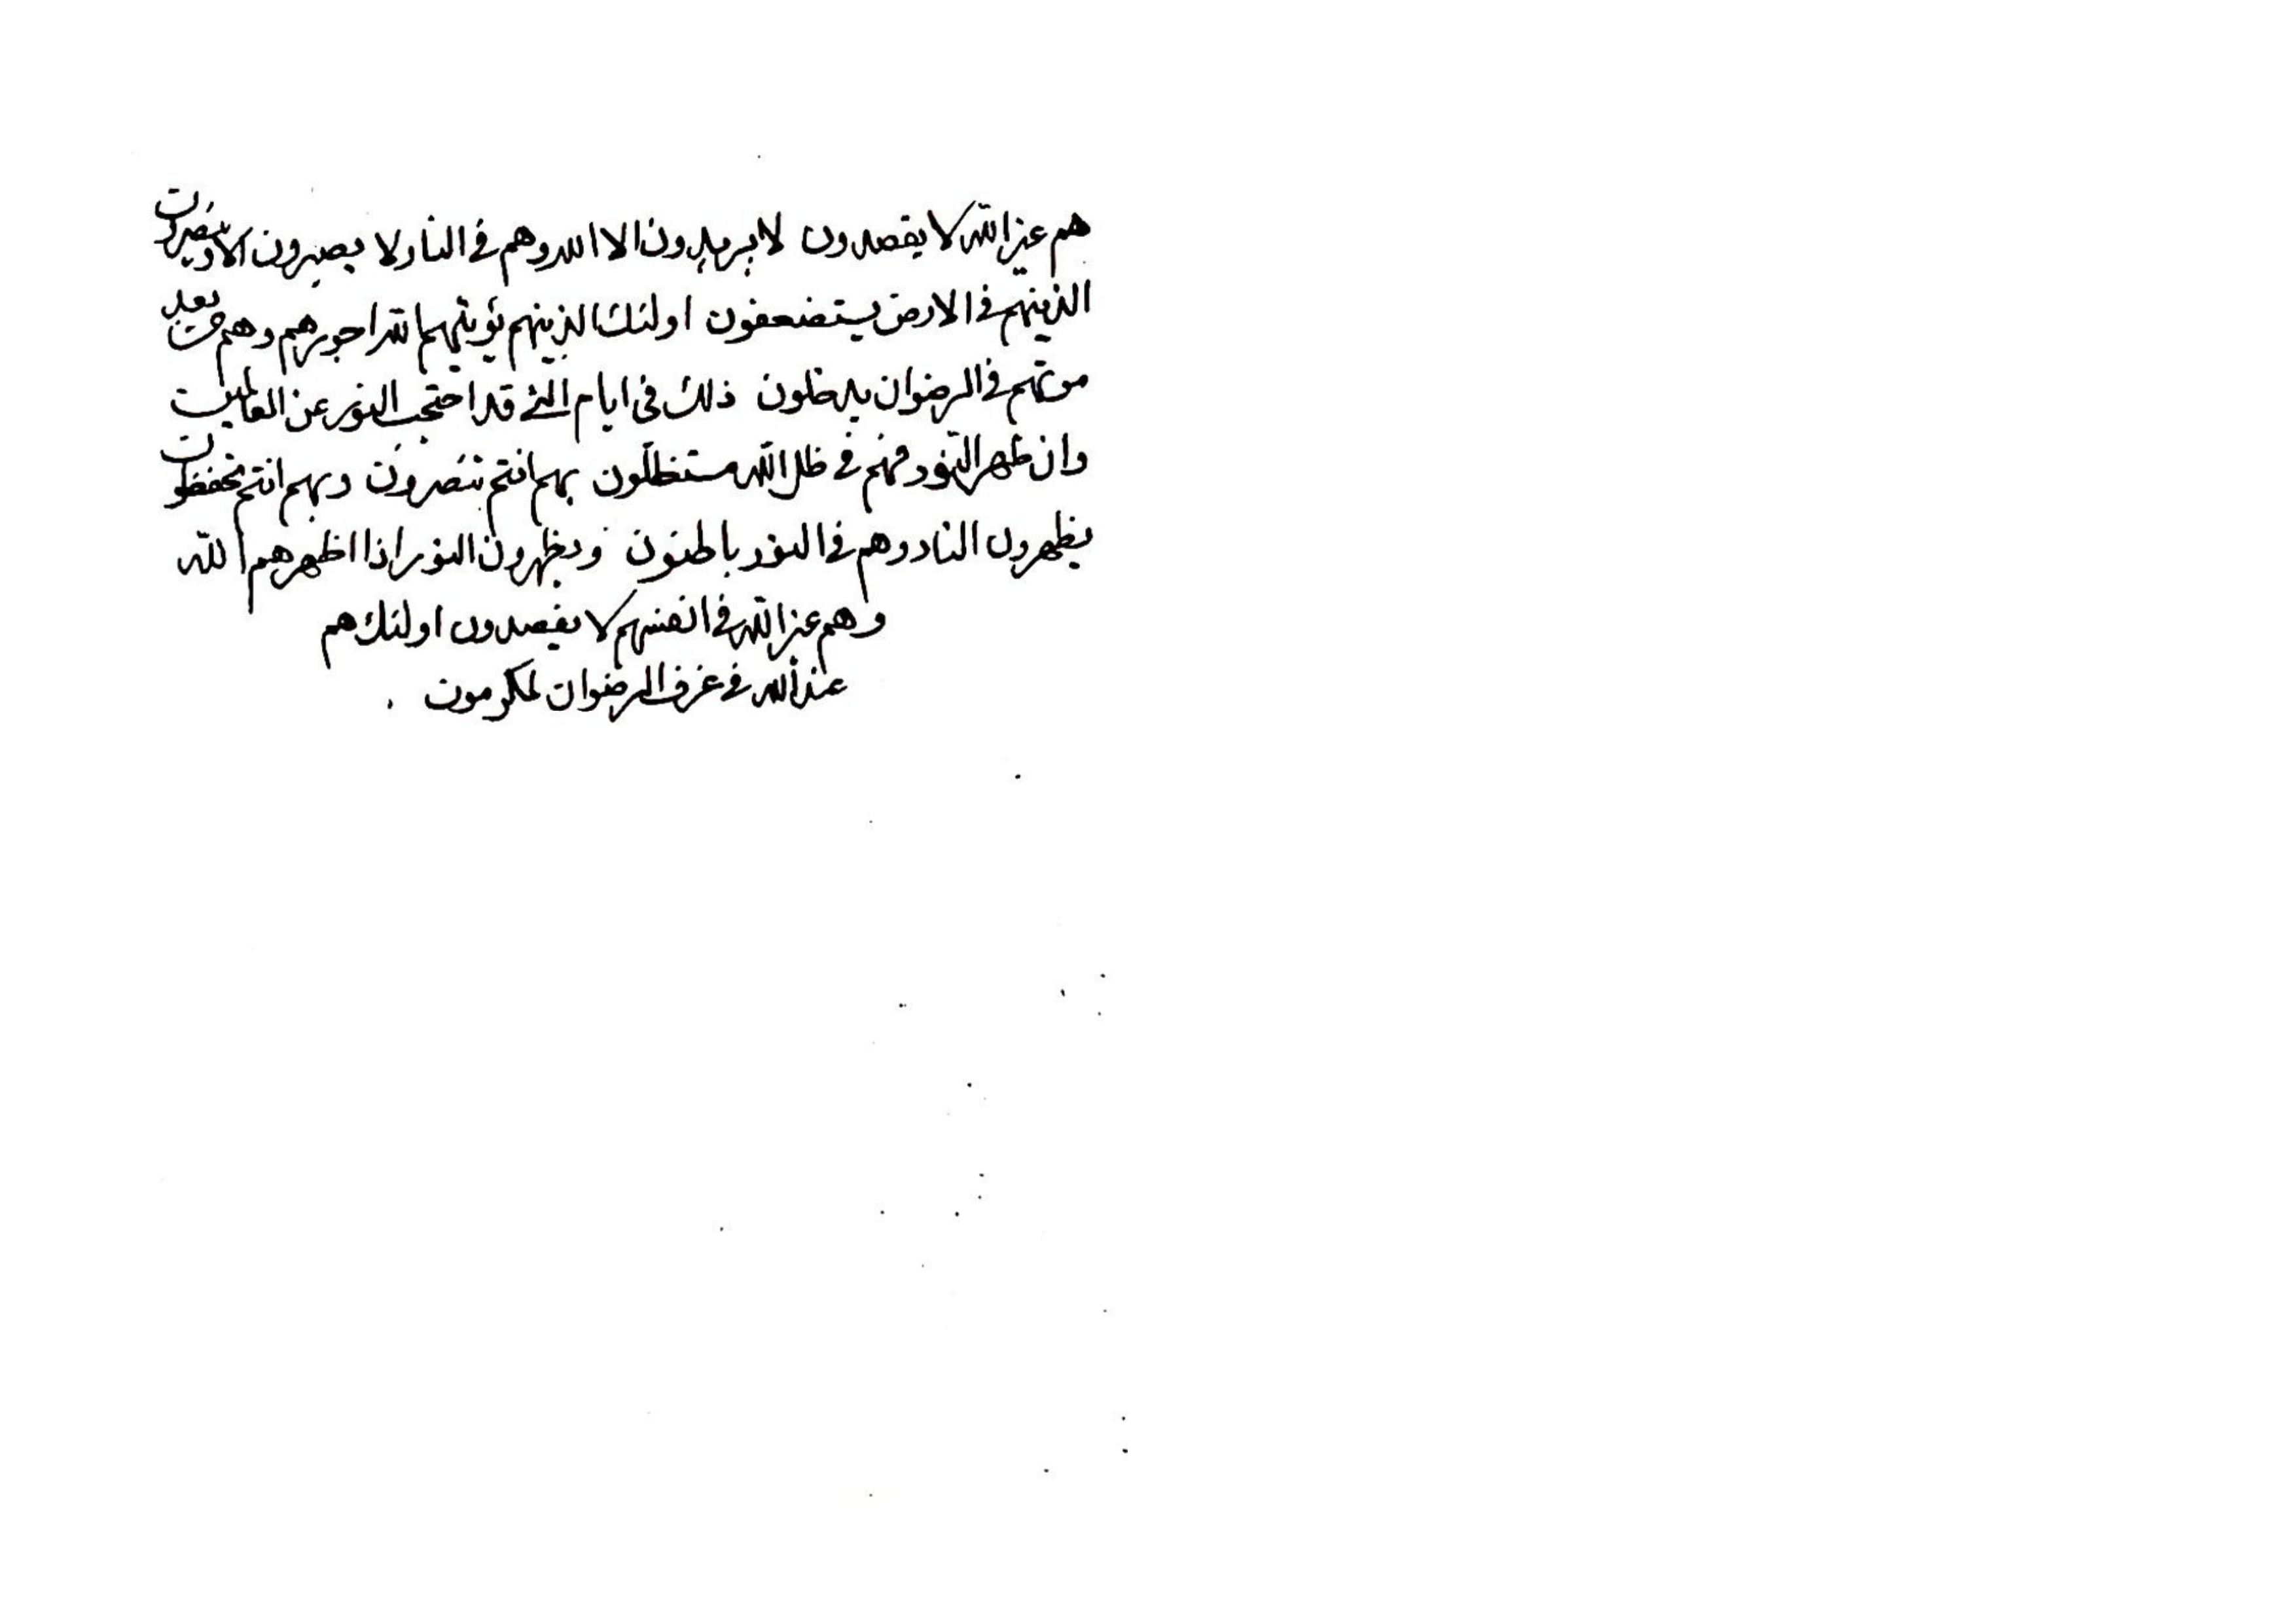 هم غیر الله لا یقصدون لا یریدون الا الله وهم فی النار لا یصبرون الا و
الذینهم فی الارض یستضعفون اولئك الذینهم یؤتیهم الله اجورهم وهم من بعد
موتهم فی الرضوان یدخلون ذلك فی ایام التی قد احتجب النور عن العالمین
وان ظهر النور فهم فی ظل الله مستظلون بهم انتم تنصرون وبهم انتم تحفظون
یظهرون النار وهم فی النور باطنون ویظهرون النور اذا اظهرهم الله
وهم غیر الله فی انفسهم لا یقصدون اولئك هم
عند الله فی غرف الرضوان لمکرمون